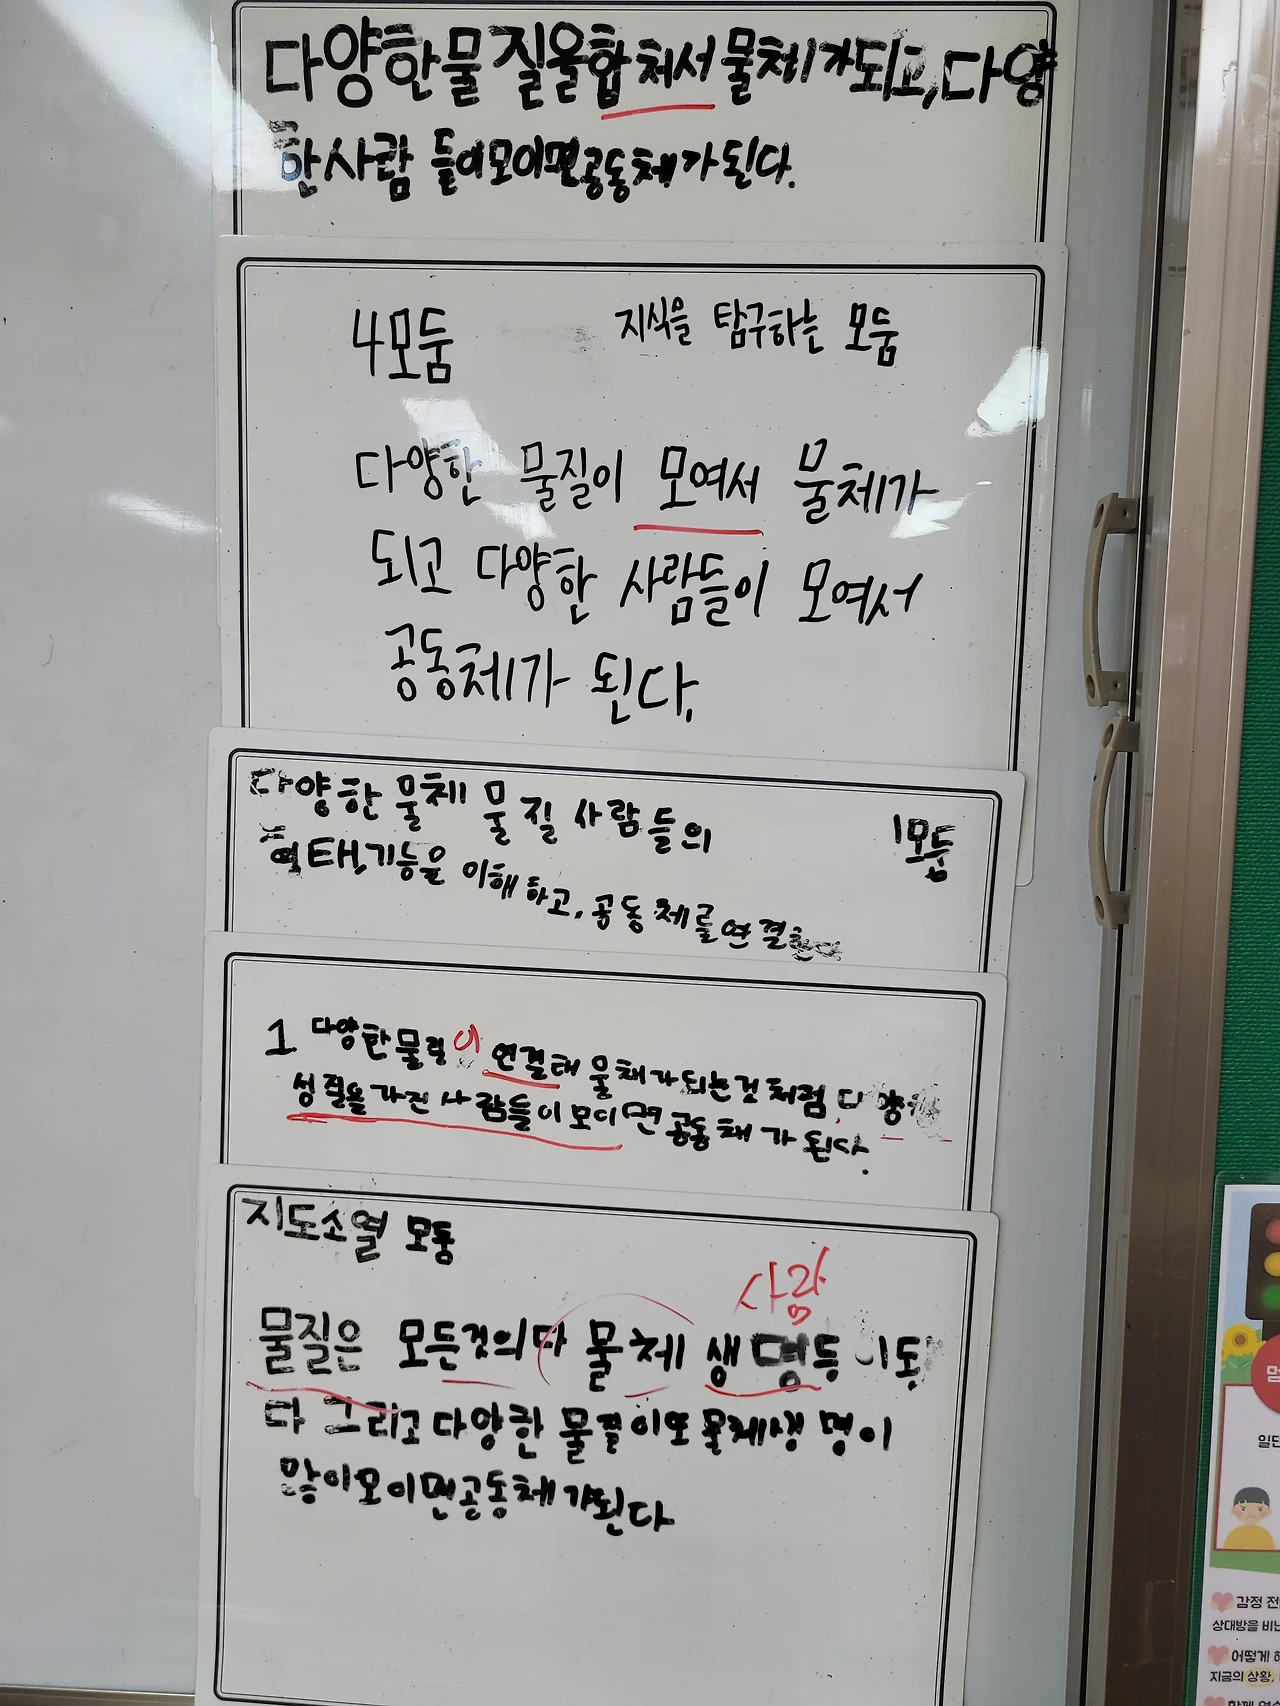 다양한물질을합쳐서물체가되고,다양
한사람들이모이면공동체가된다.
4모둠 지식을 탐구하는 모둠
다양한 물질이 모여서 물체가
되고 다양한 사람들이 모여서
공동체가 된다.
다양한 물체 물질 사람들의
1모둠
형태,기능을 이해하고, 공동체를연결한다
1 다양한물질이 연결돼 물체가되는것처럼, 다양한
성질을 가진 사람들이모이면 공동체가 된다.
지도소열 모둠
사람
물질은 모든것의다 물체 생명등
다 그리고다양한 물질이모 물체생명이
많이모이면공동체가된다
일단
감정 전
상대방을 비난
어떻게 해
지금의 상황,